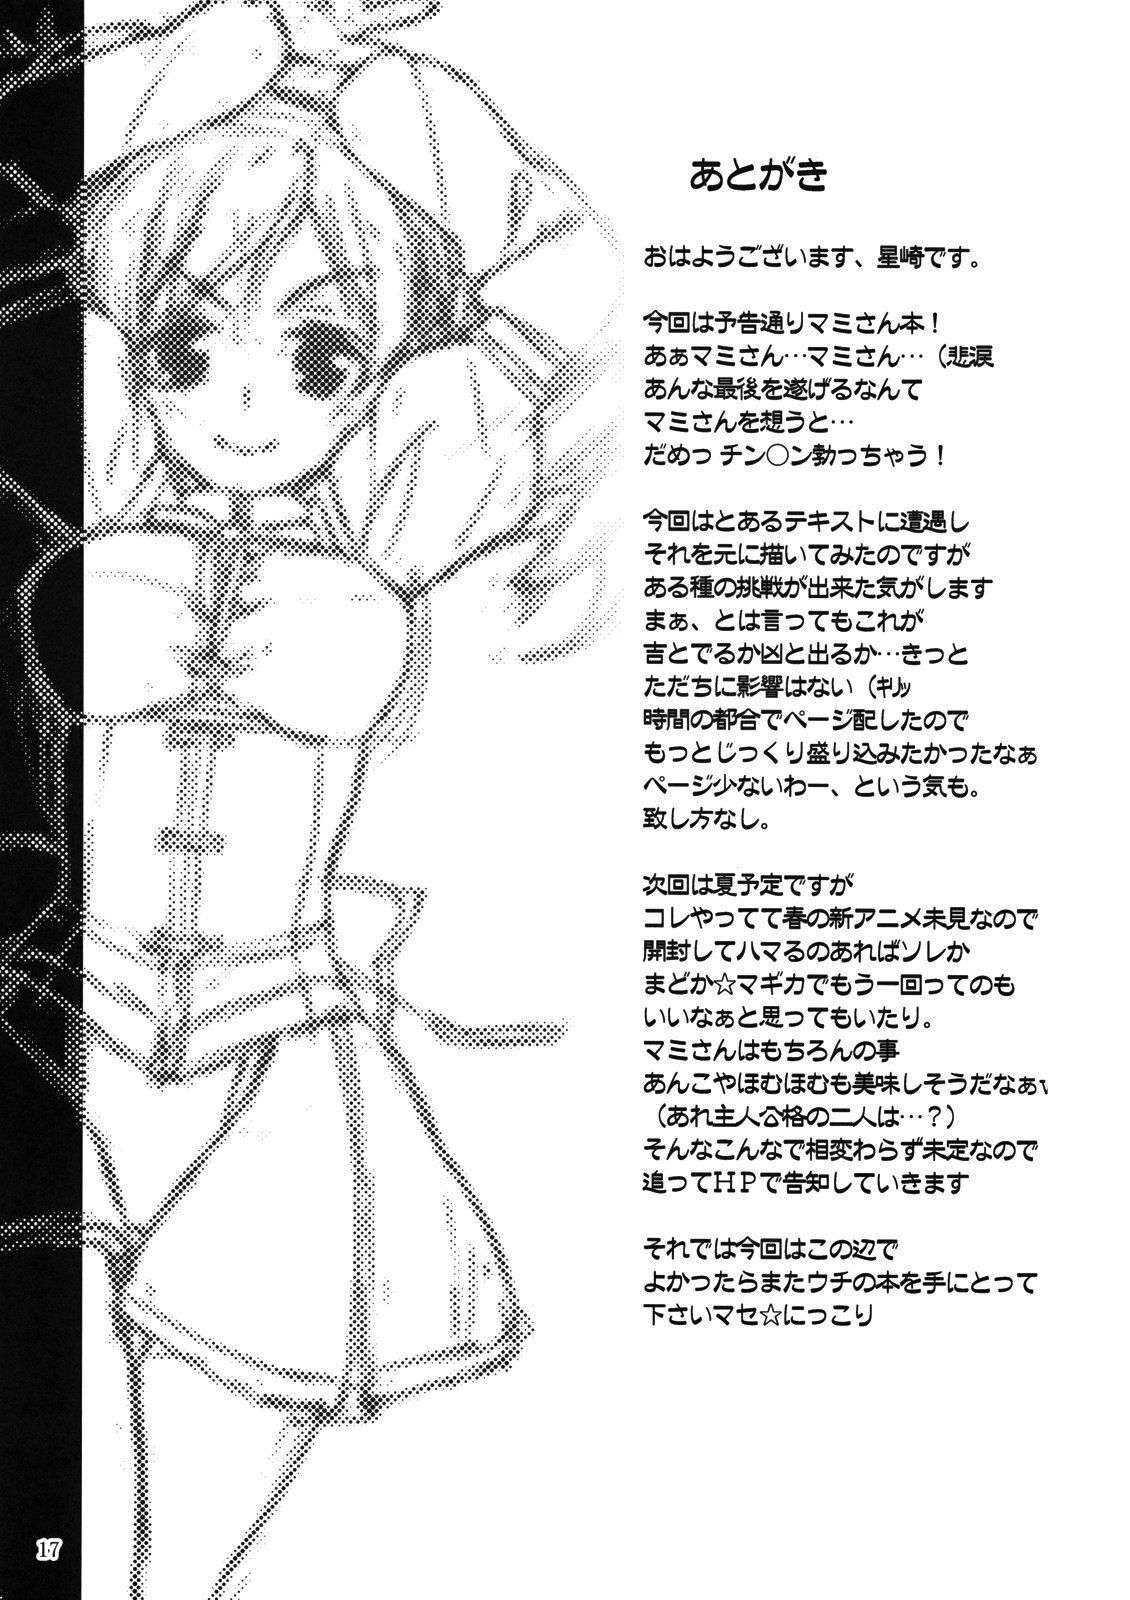 あとがき
おはようございます、星崎です。
今回は予告通りマミさん本！
あぁマミさん…マミさん…（悲涙
あんな最後を遂げるなんて
マミさんを想うと…
だめっ チン○ン勃っちゃう！
今回はとあるテキストに遭遇し
それを元に描いてみたのですが
ある種の挑戦が出来た気がします
まぁ、とは言ってもこれが
吉とでるか凶と出るか…きっと
ただちに影響はない（ｷﾘｯ
時間の都合でページ配したので
もっとじっくり盛り込みたかったなぁ
ページ少ないわー、という気も。
致し方なし。
次回は夏予定ですが
コレやってて春の新アニメ未見なので
開封してハマるのあればソレか
まどか☆マギカでもう一回ってのも
いいなぁと思ってもいたり。
マミさんはもちろんの事
あんこやほむほむも美味しそうだなぁ
（あれ主人公格の二人は…？）
そんなこんなで相変わらず未定なので
追ってＨＰで告知していきます
それでは今回はこの辺で
よかったらまたウチの本を手にとって
下さいマセ☆にっこり
17